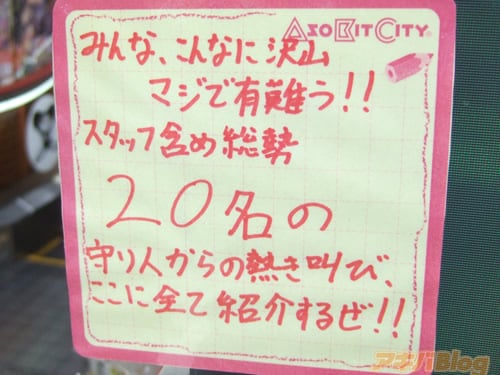 ASOBITCITY
みんな、こんなに沢山
マジで有難う!!
スタッフ含め総勢
20名の
守り人からの熱き叫び、
ここに全て紹介するぜ!!
アキバBlog